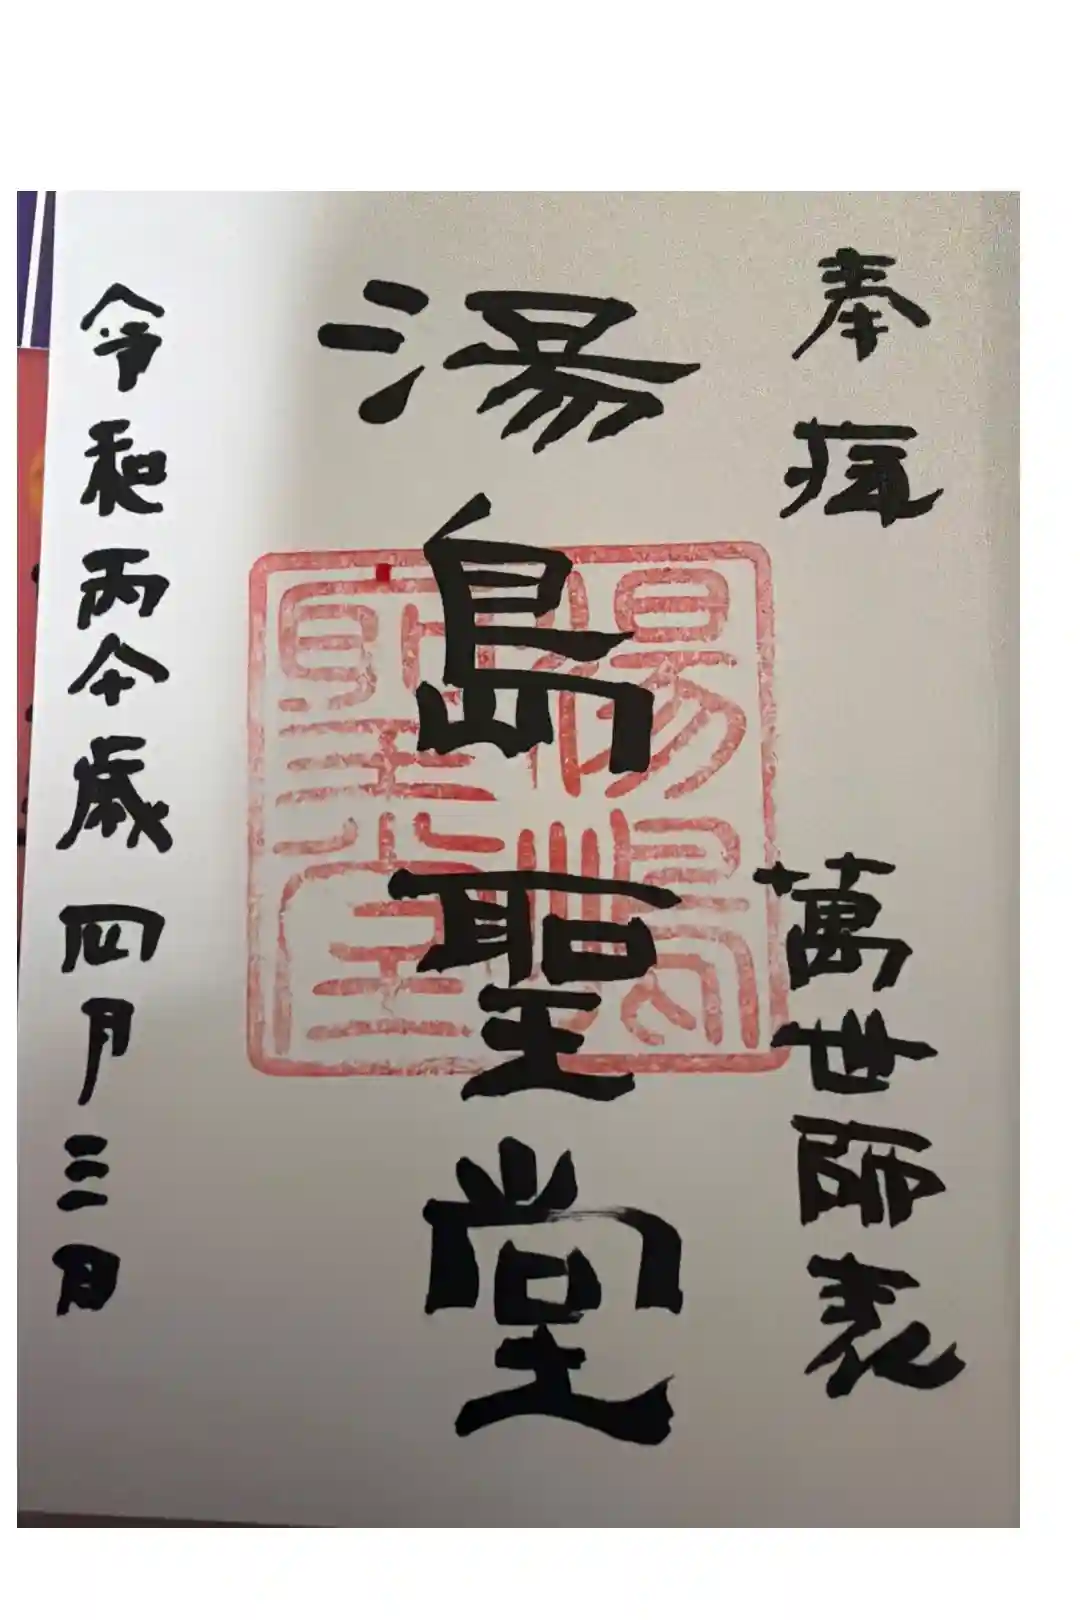 奉
萬世師表
湯島聖堂
湯島
聖堂
令和丙午歳四月三日